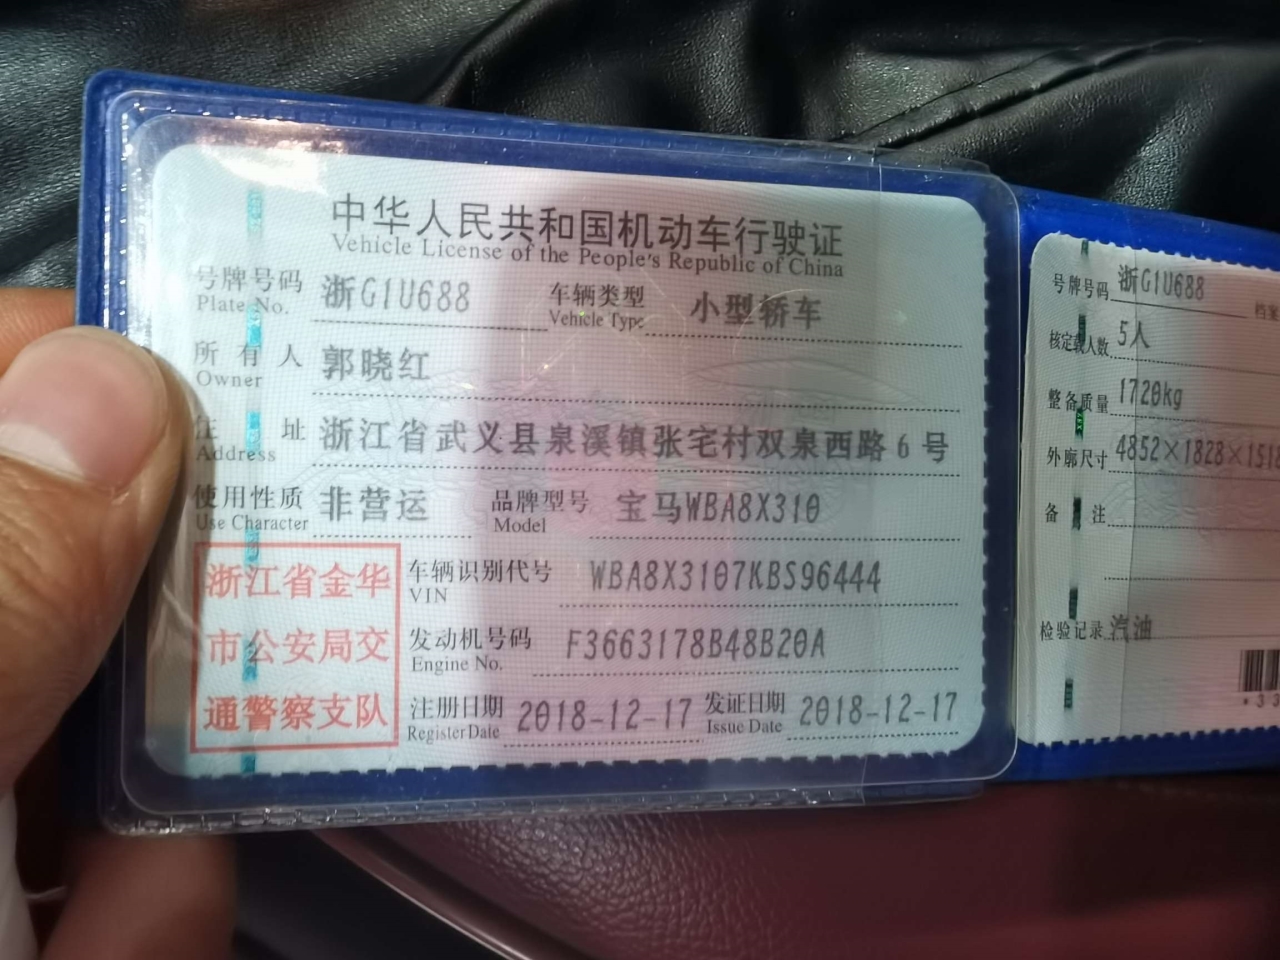 中华人民共和国机动车行驶证
Vehicle License of the People's Republic of China
号牌号码 浙G1U688 车辆类型 小型轿车
Plate No. Vehicle Type
所有人 郭晓红
Owner
住址 浙江省武义县泉溪镇张宅村双泉西路6号
Address
使用性质 非营运 品牌型号 宝马WBA8X310
Use Character Model
浙江省金华
市公安局交
通警察支队
车辆识别代号 WBA8X3107KBS96444
VIN
发动机号码 F3663178B48B20A
Engine No.
注册日期 2018-12-17 发证日期 2018-12-17
Register Date Issue Date
号牌号码 浙G1U688
核定载人数 5人
整备质量 1720kg
外廓尺寸 4852×1828×151
备注
检验记录 汽油